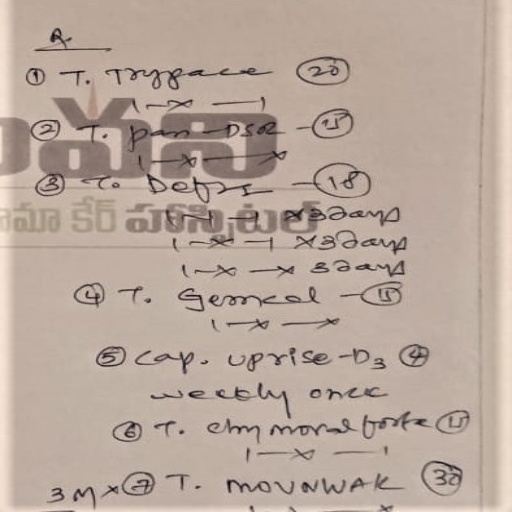 R.
① T. Trypace ⑳
1-x-1
② T. pan-DSR - ⑮
1-x-x
③ T. Defzs - ⑱
1-1-1 x3days
1-x-1 x3days
1-x-x 3days
④ T. Gemcal - ⑮
1-x-x
⑤ Cap. uprise-D3 ④
weekly once
⑥ T. chymoral forte ⑮
1-x-1
3M x ⑦ T. MOVNWAK ㉚
కేర్ హాస్పిటల్